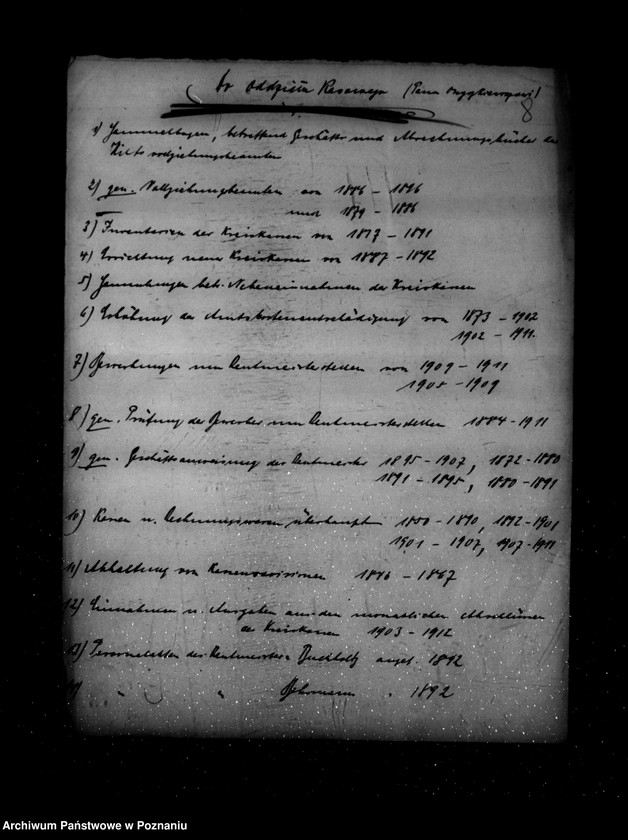 Oddział Kasowy (Pana
8
1) Sammelbogen, betreffend Geschäfts und Abrechnungsbücher der
Vollziehungsbeamten
2) gen. Vollziehungsbeamten von 1886 - 1896
und 1879 - 1886
3) Inventarien der Kreiskassen von 1877 - 1891
4) Errichtung neuer Kreiskassen von 1887 - 1892
5) Sammlungen betr. Nebeneinnahmen der Kreiskassen
6) Erhöhung der Amtskostenentschädigung von 1873 - 1902
1902 - 1911.
7) Bewerbungen um Rentmeisterstellen von 1909 - 1911
1905 - 1909
8) gen. Prüfung der Bewerber um Rentmeisterstellen 1884 - 1911
9) gen. Geschäftsanweisung der Rentmeister 1895 - 1907, 1872 - 1880
1891 - 1895, 1880 - 1891
10) Kassen u. Rechnungswesen überhaupt 1850 - 1890, 1892 - 1901
1901 - 1907, 1907 - 1911
11) Abhaltung von Kassenrevisionen 1846 - 1867
12) Einnahmen u. Ausgaben aus den monatlichen Abschlüssen
der Kreiskassen 1903 - 1912
13) Personalakten des Rentmeisters Buchholtz angef. 1892
" " . 1892
Archiwum Państwowe w Poznaniu